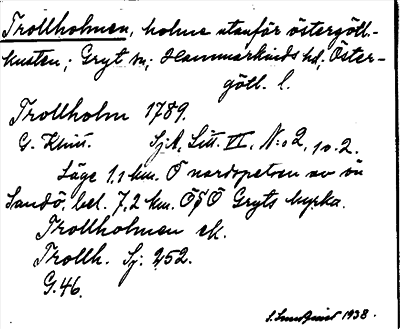 Trollholmen, holme utanför östergötl.-
kusten; Gryt sn; Hammarkinds hd, Öster-
götl. l.
Trollholm 1789.
G. SjA, Litt. VI, N:o 2, 10.2.
Läge 1,1 km. Ö nordspetsen av ön
Sandö, bel. 7,2 km. ÖSÖ Gryts kyrka.
Trollholmen ek.
Trollh. Sj. 252.
G. 46.
1938.